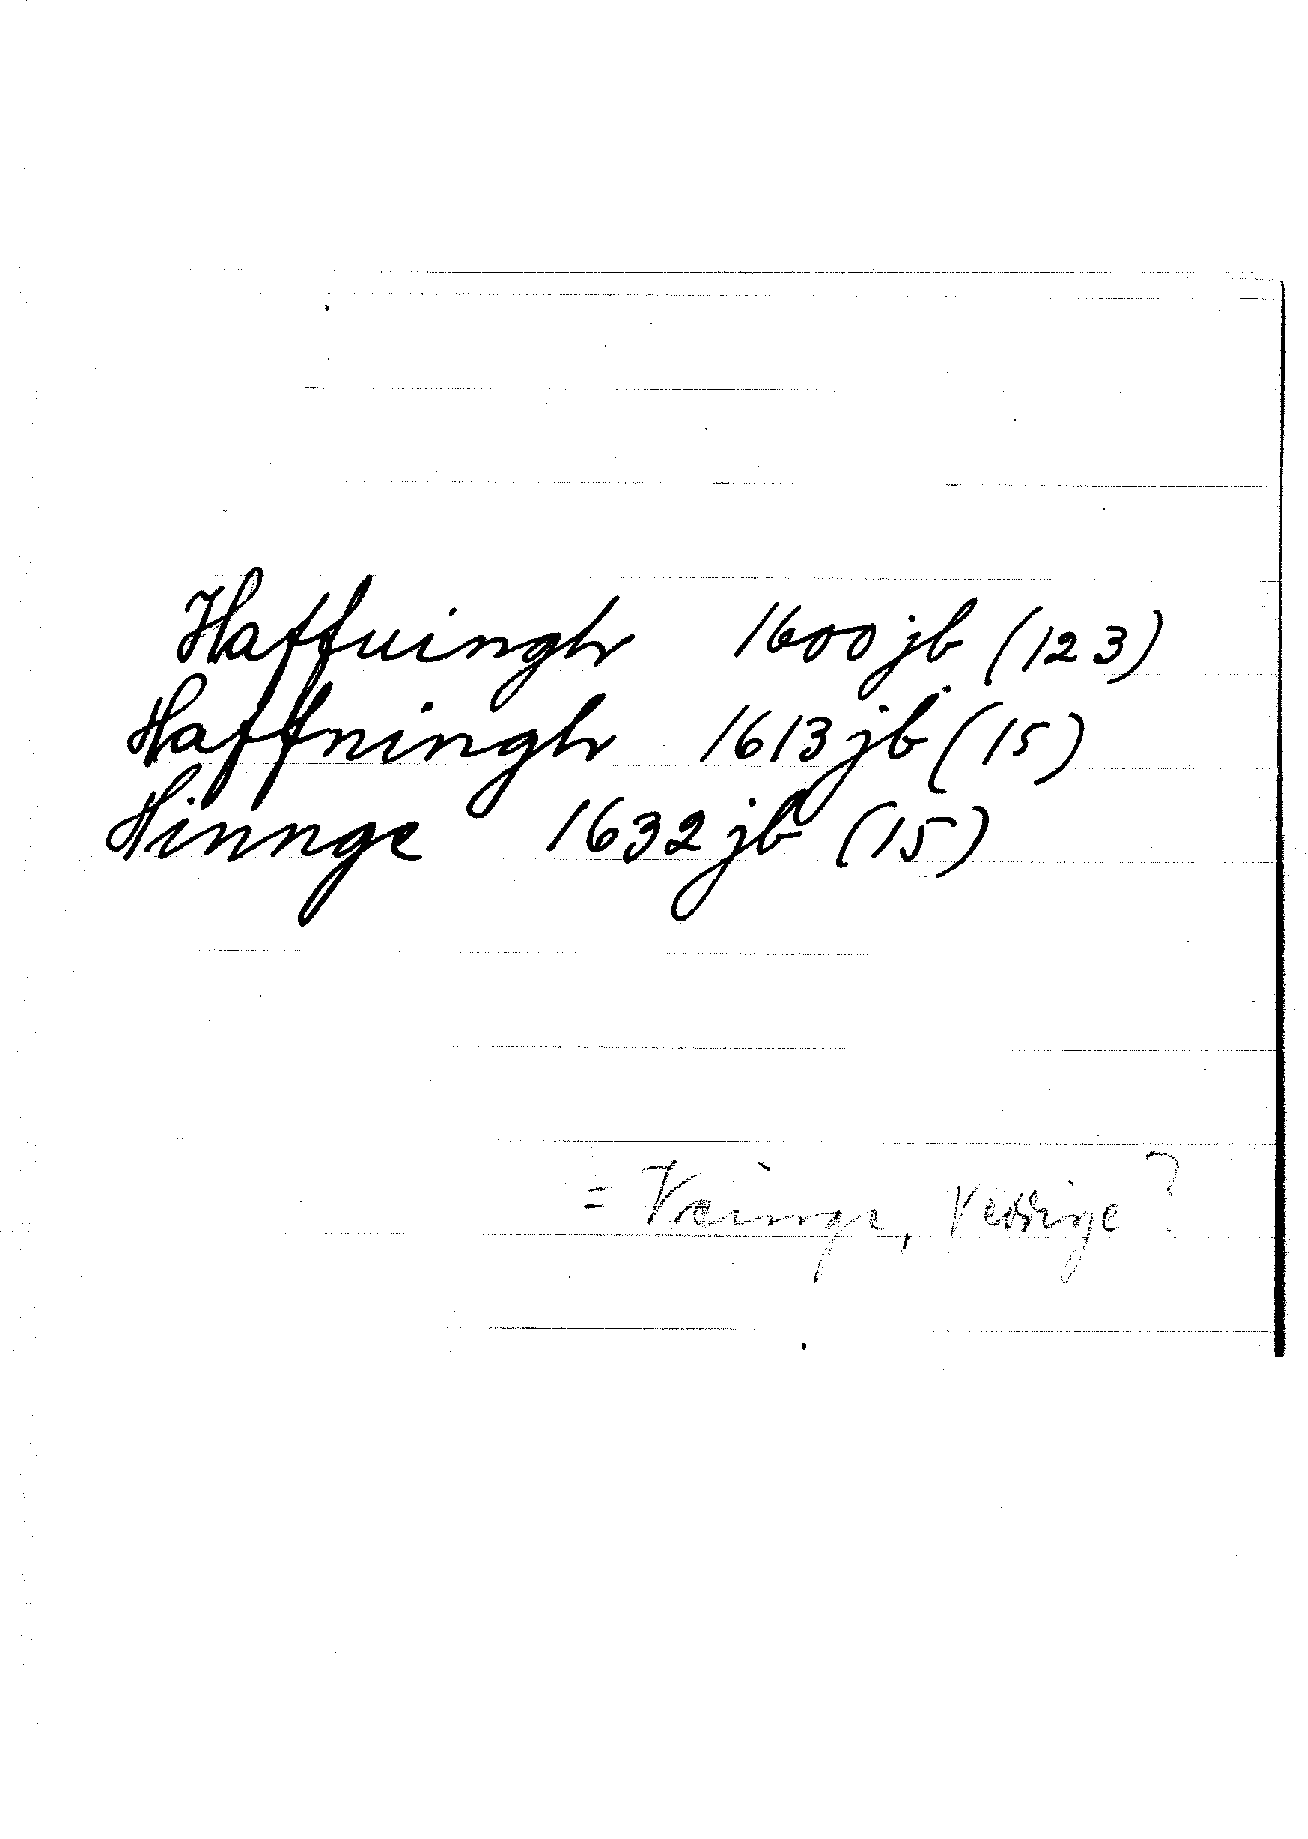 Haffuingh 1600 jb (123)
Haffningh 1613 jb (15)
Hinnge 1632 jb (15)
= Väinge, Veddige?